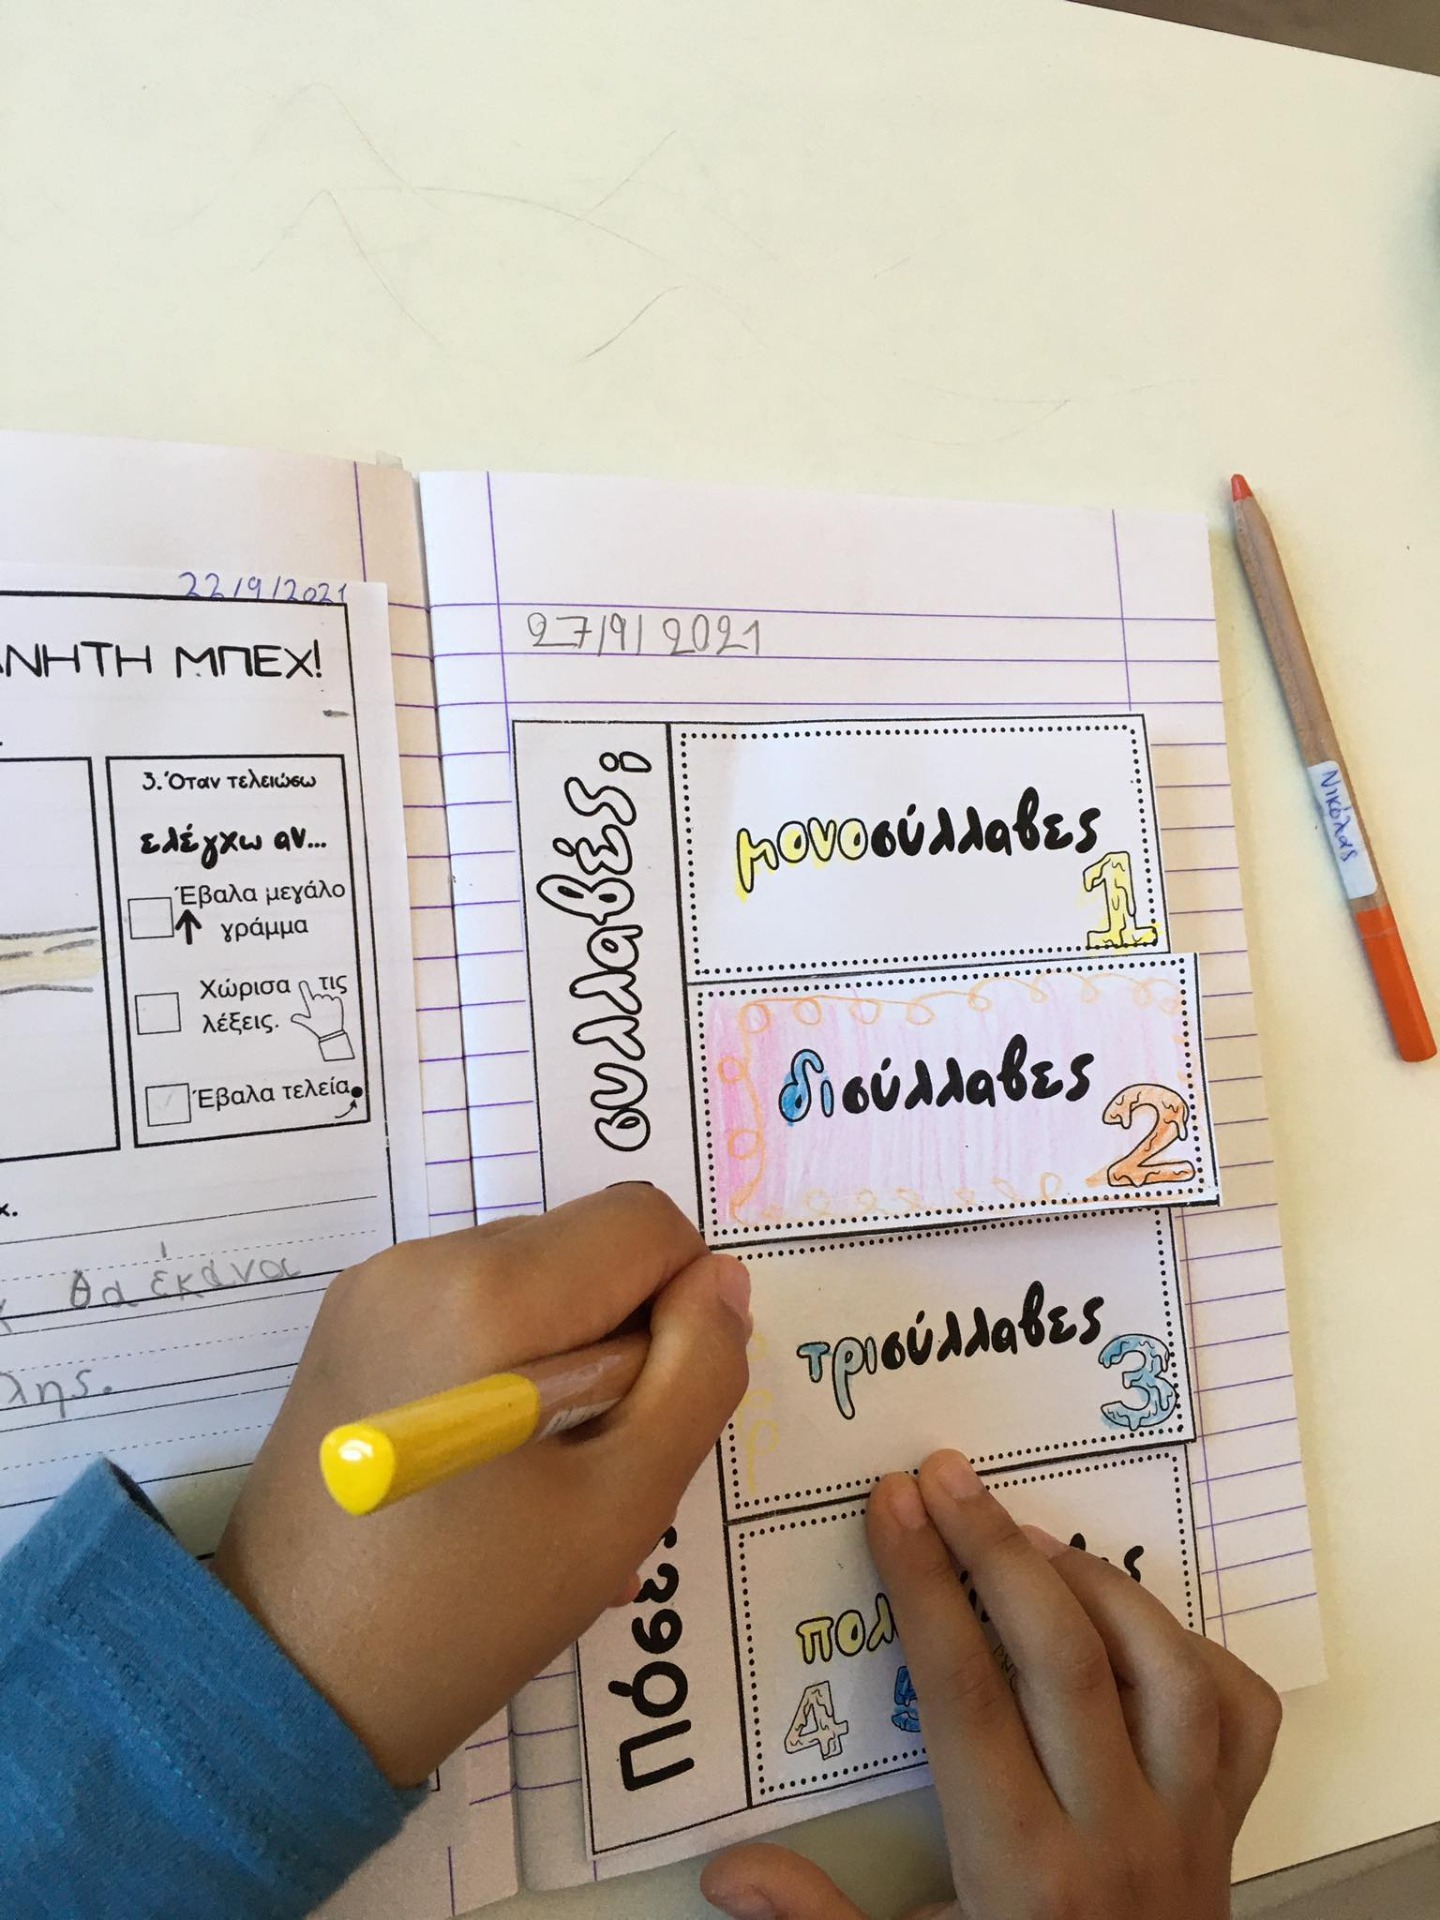 22/9/2021
ΑΝΗΤΗ ΜΠΕΧ!
3. Όταν τελειώσω
ελέγχω αν...
Έβαλα μεγάλο
γράμμα
Χώρισα τις
λέξεις.
Έβαλα τελεία
θα έκανα
λης.
27/9/2021
Πόσες συλλαβές;
μονοσύλλαβες
1
δισύλλαβες
2
τρισύλλαβες
3
4 5
Νικόλας